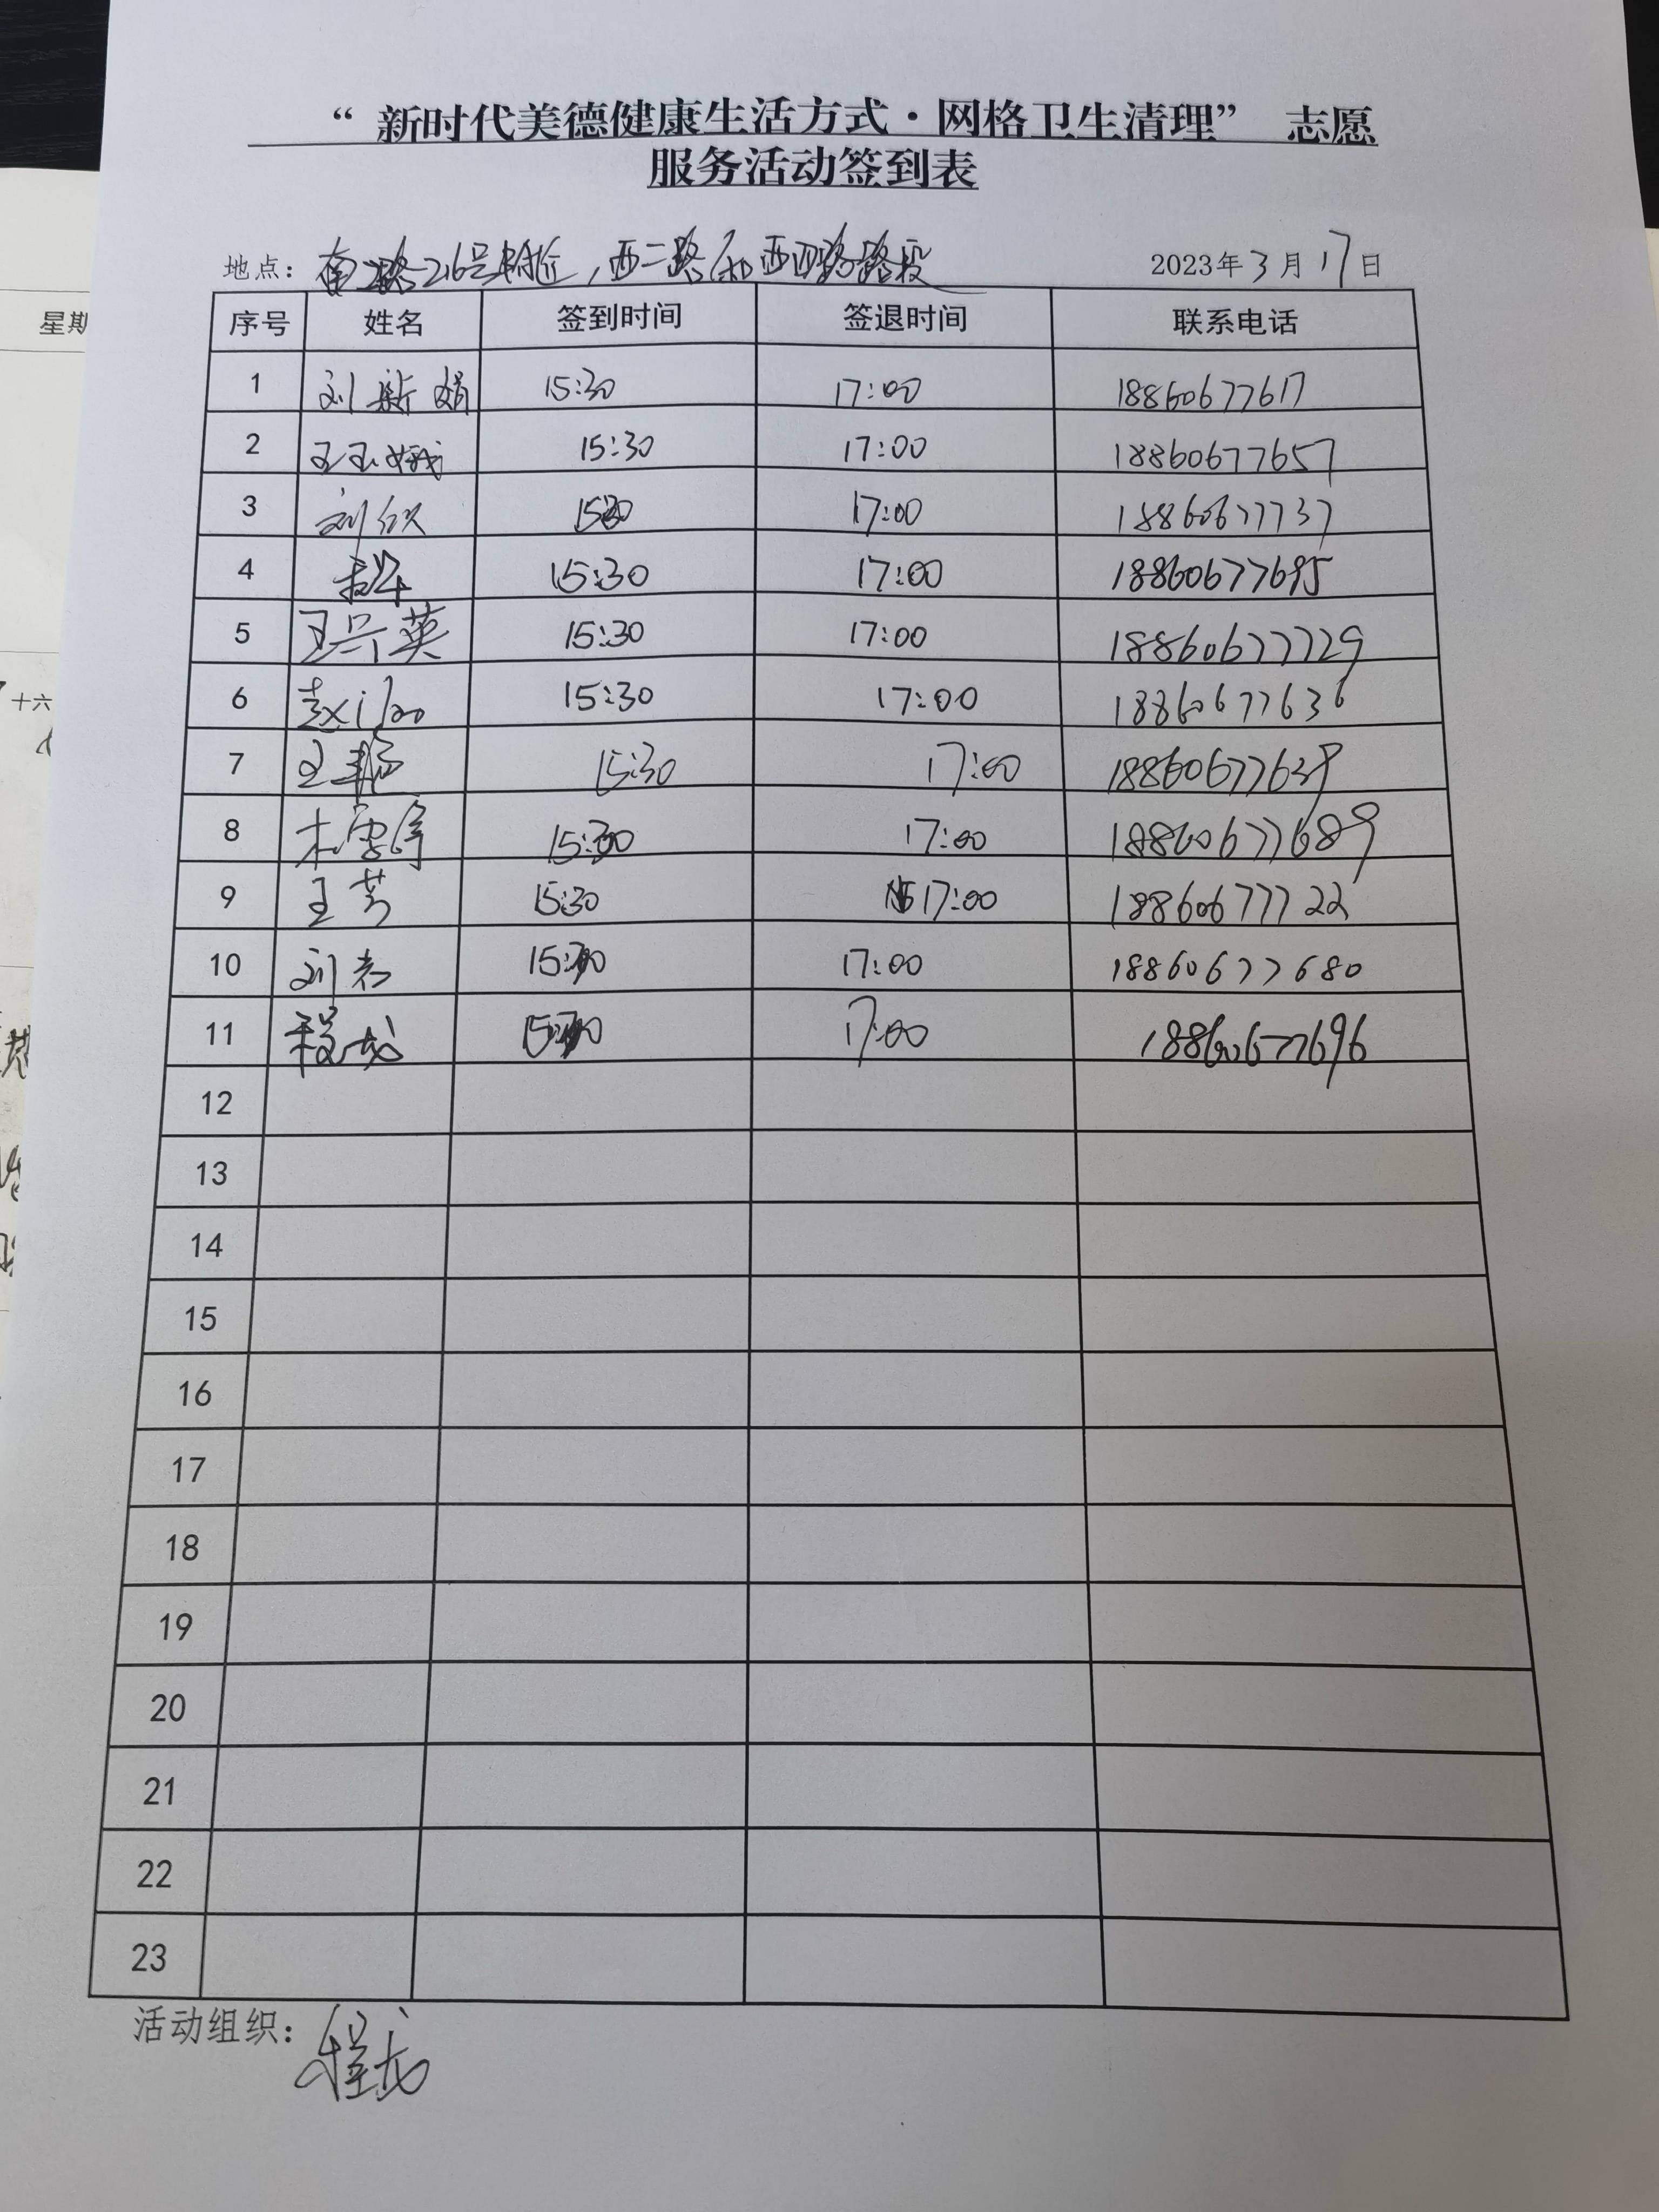 “新时代美德健康生活方式·网格卫生清理” 志愿
服务活动签到表
地点： 216号 ，西二路和西四路路段 2023年3月17日
序号 姓名 签到时间 签退时间 联系电话
1 刘新娟 15:30 17:00 18860677617
2 王玉娥 15:30 17:00 18860677657
3 刘欣 15:30 17:00 18860677737
4 15:30 17:00 18860677695
5 王兴英 15:30 17:00 18860677729
6 赵 15:30 17:00 18860677636
7 王艳 15:30 17:00 18860677639
8 15:30 17:00 18860677689
9 王芳 15:30 17:00 18860677722
10 刘 15:30 17:00 18860677680
11 程龙 15:30 17:00 18860677696
12
13
14
15
16
17
18
19
20
21
22
23
活动组织：程龙
星期
十六